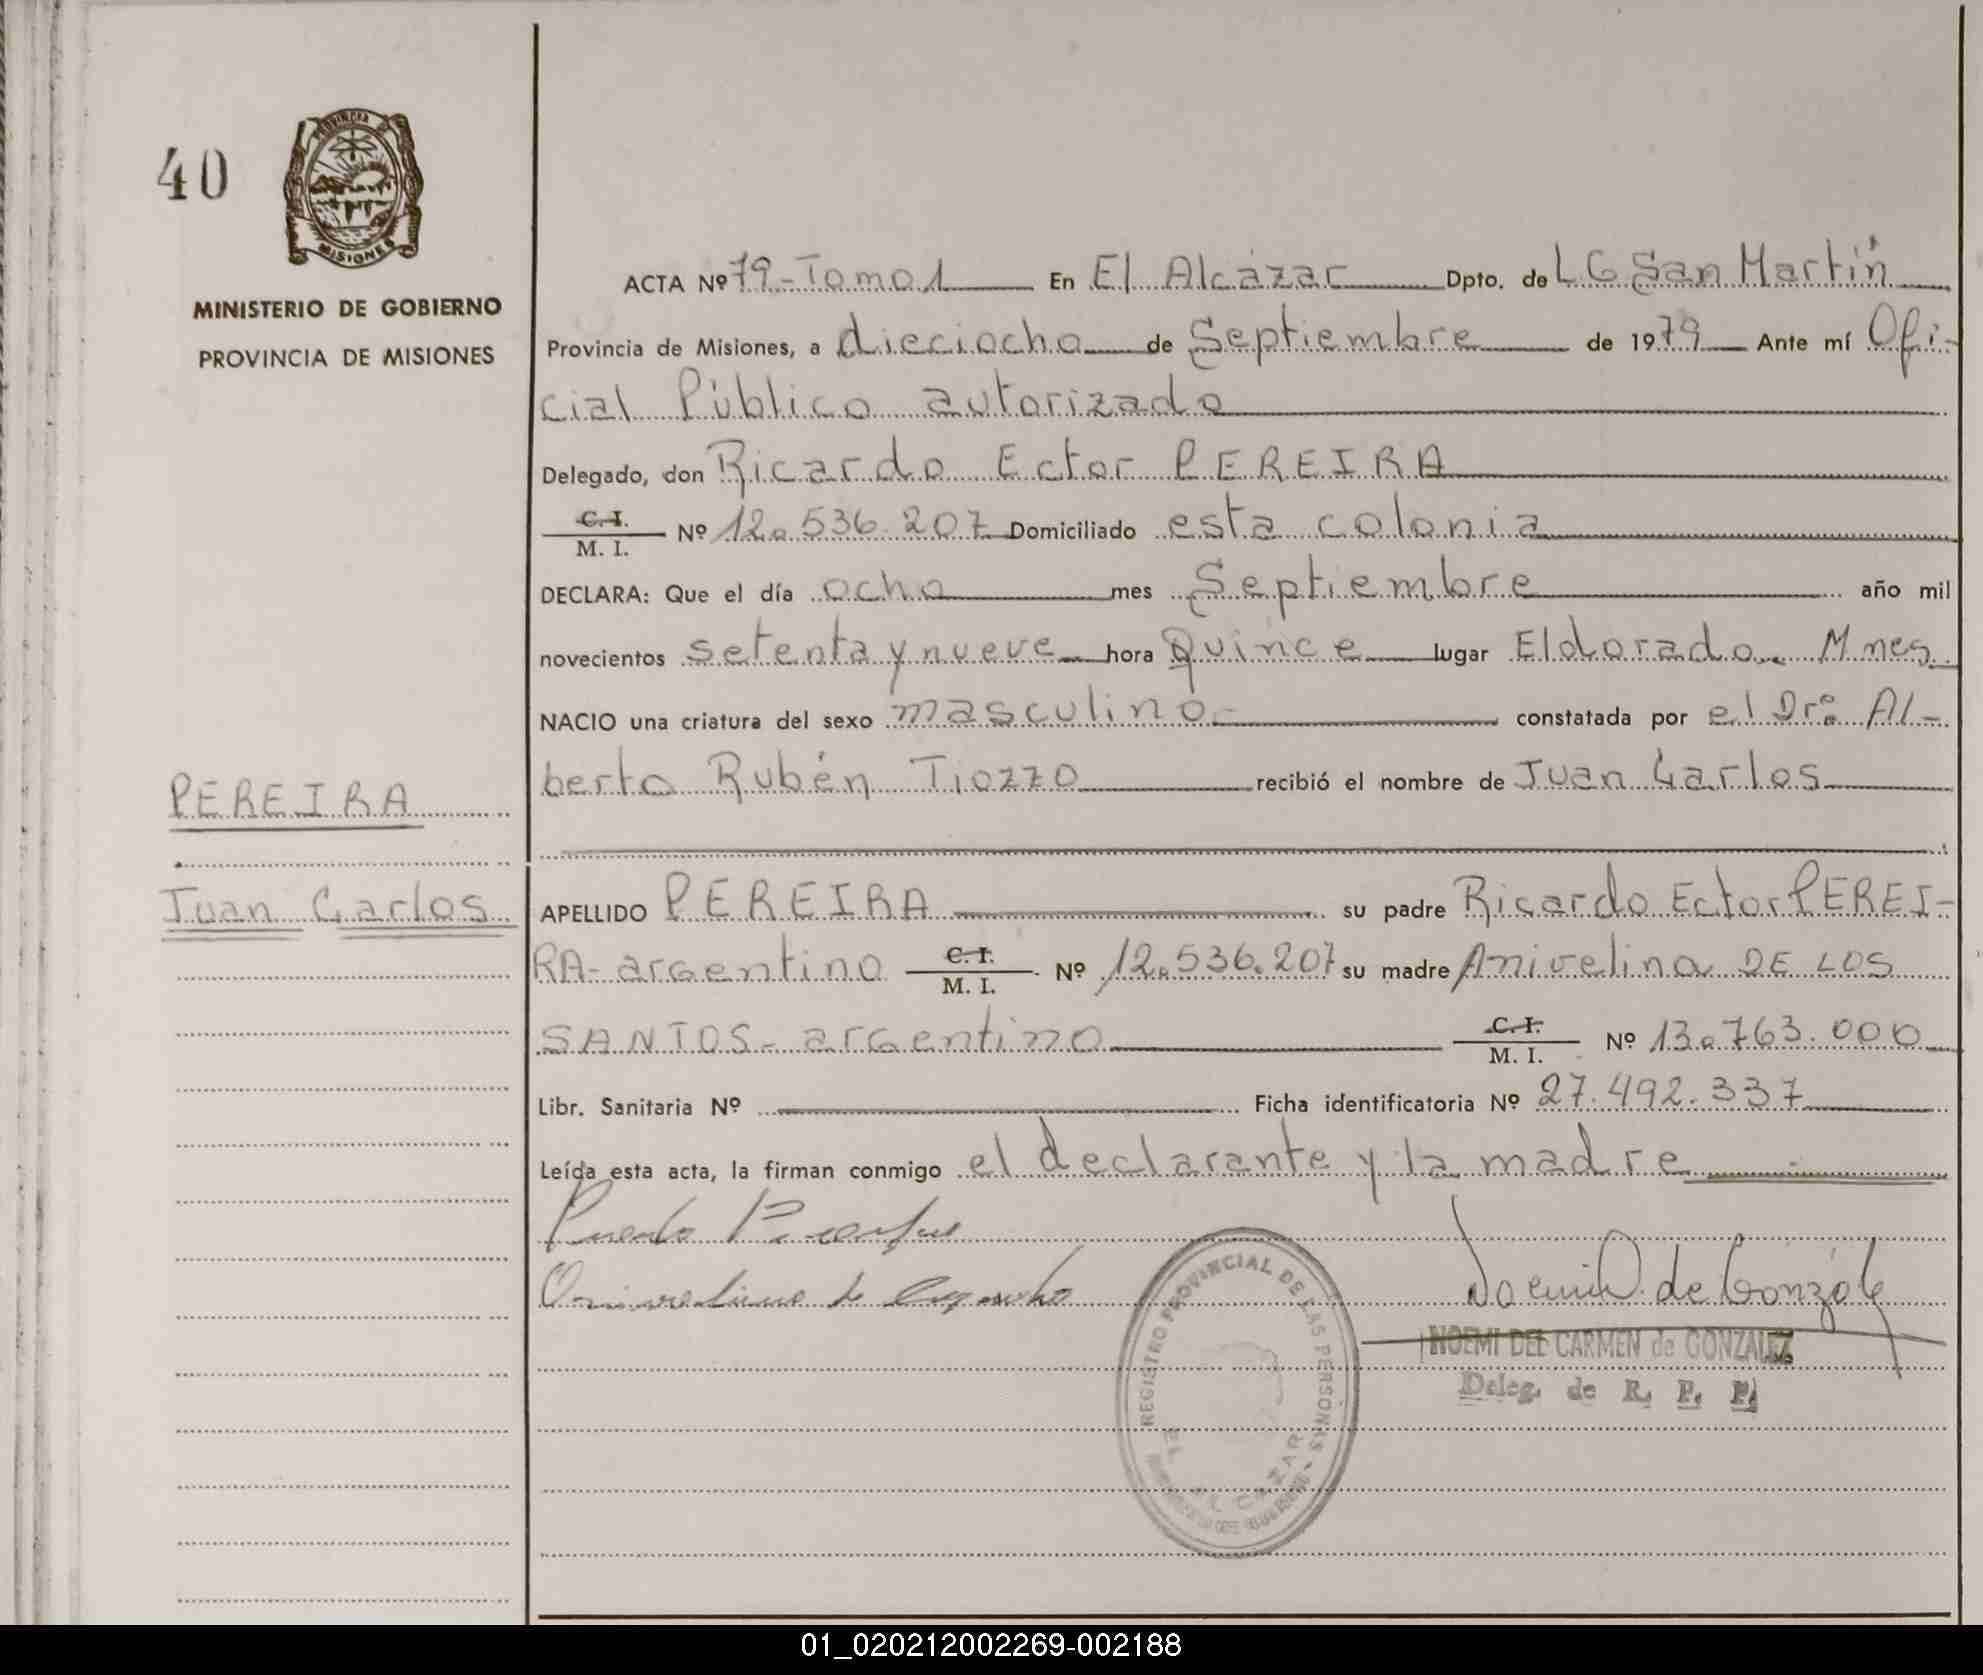 40
PROVINCIA DE
MISIONES
MINISTERIO DE GOBIERNO
PROVINCIA DE MISIONES
PEREIRA
Juan Carlos
ACTA Nº 79-Tomo 1 En El Alcázar Dpto. de L G San Martín
Provincia de Misiones, a dieciocho de Septiembre de 1979 Ante mí Ofi-
cial Público autorizado
Delegado, don Ricardo Ector PEREIRA
C. I.
M. I. Nº 12.536.207 Domiciliado esta colonia
DECLARA: Que el día ocho mes Septiembre año mil
novecientos setenta y nueve hora Quince lugar Eldorado. Mnes.
NACIO una criatura del sexo masculino.- constatada por el Dr. Al-
berto Rubén Tiozzo recibió el nombre de Juan Carlos
APELLIDO PEREIRA su padre Ricardo Ector PEREI-
RA- argentino C. I. M. I. Nº 12.536.207 su madre Anivelina DE LOS
SANTOS- argentino C. I. M. I. Nº 13.763.000
Libr. Sanitaria Nº Ficha identificatoria Nº 27.492.337
Leída esta acta, la firman conmigo el declarante y la madre
de Gonzále
NOEMI DEL CARMEN de GONZALEZ
Deleg. de R. P. P.
REGISTRO PROVINCIAL DE LAS PERSONAS
EL ALCAZAR
01_020212002269-002188